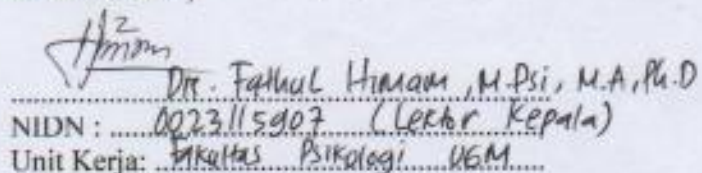 Drr. Fathul Himam, M.Psi, M.A, Ph.D
NIDN : 0023115907 (Lektor Kepala)
Unit Kerja: Fakultas Psikologi UGM